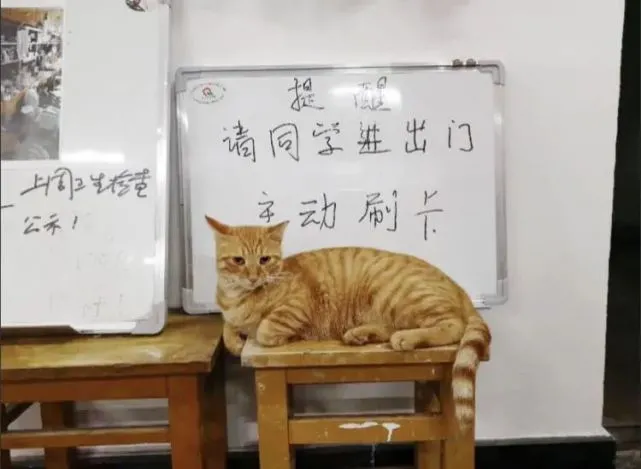 上周卫生检查
公示！
提醒
请同学进出门
主动刷卡